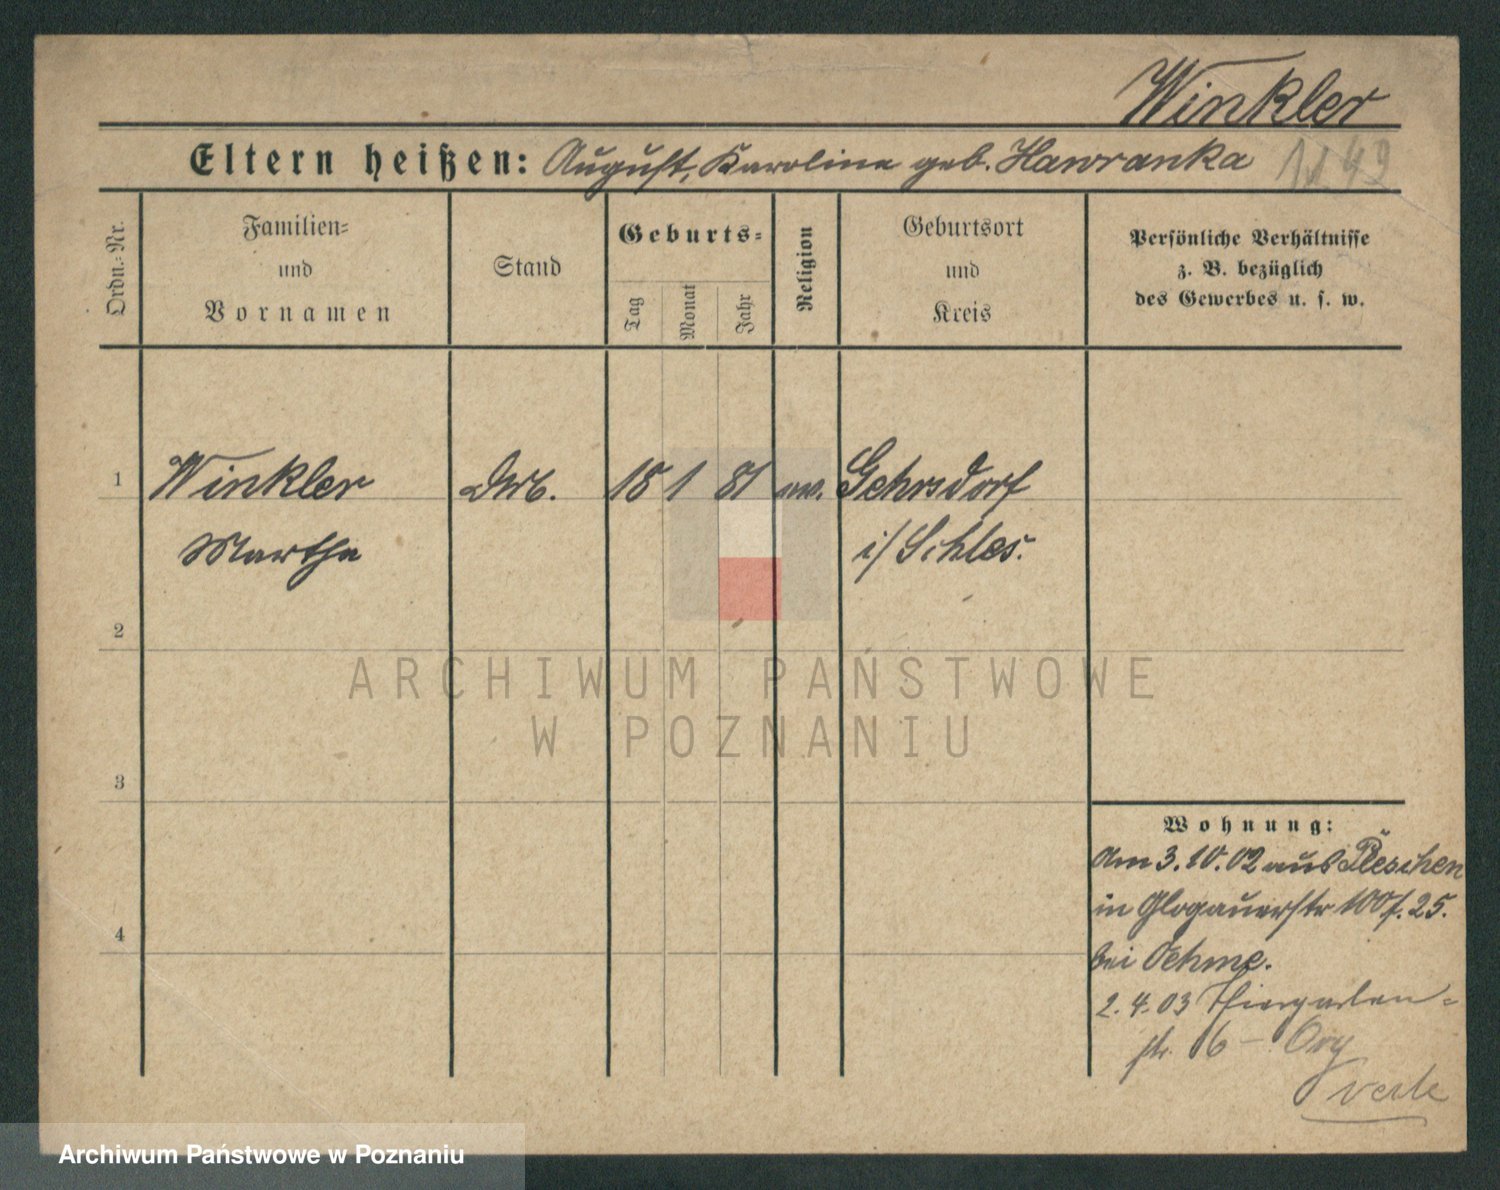 Winkler
Eltern heißen: August, Karoline geb. Hawranka
Ordn.-Nr.
Familien-
und
Vornamen
Stand
Geburts-
Tag
Monat
Jahr
Religion
Geburtsort
und
Kreis
Persönliche Verhältnisse
z. B. bezüglich
des Gewerbes u. s. w.
1 Winkler 18 1 81 Gehrsdorf
Martha i/ Schles.
2
ARCHIWUM PAŃSTWOWE
W POZNANIU
3
Wohnung:
Am 3.10.02 aus Pleschen
in Glogauerstr 100 25.
4
bei Oehme.
2.4.03 Thiergarten-
str. 6 -
Archiwum Państwowe w Poznaniu